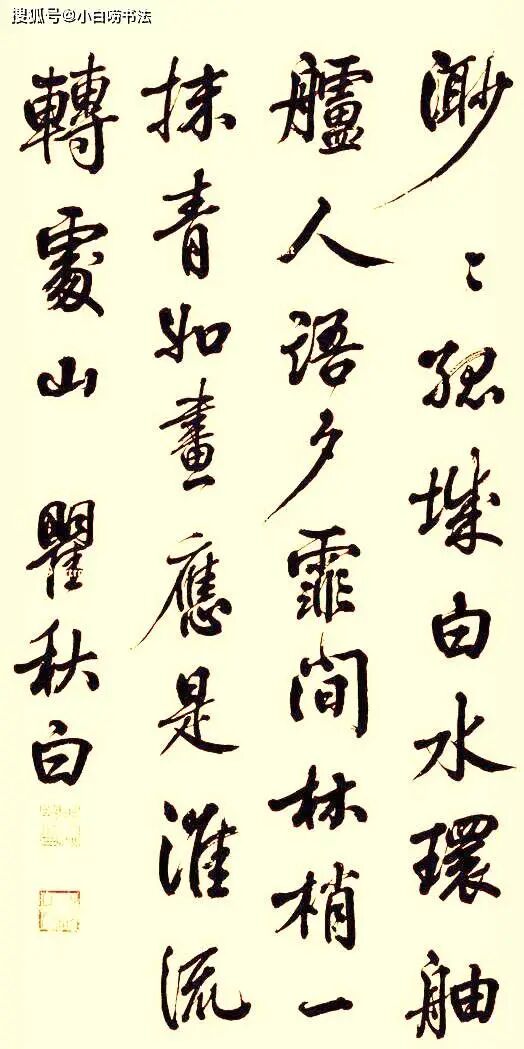 搜狐号@小白唠书法
渺〻孤城白水環舳
艫人語夕霏間林梢一
抹青如畫應是淮流
轉處山 瞿秋白